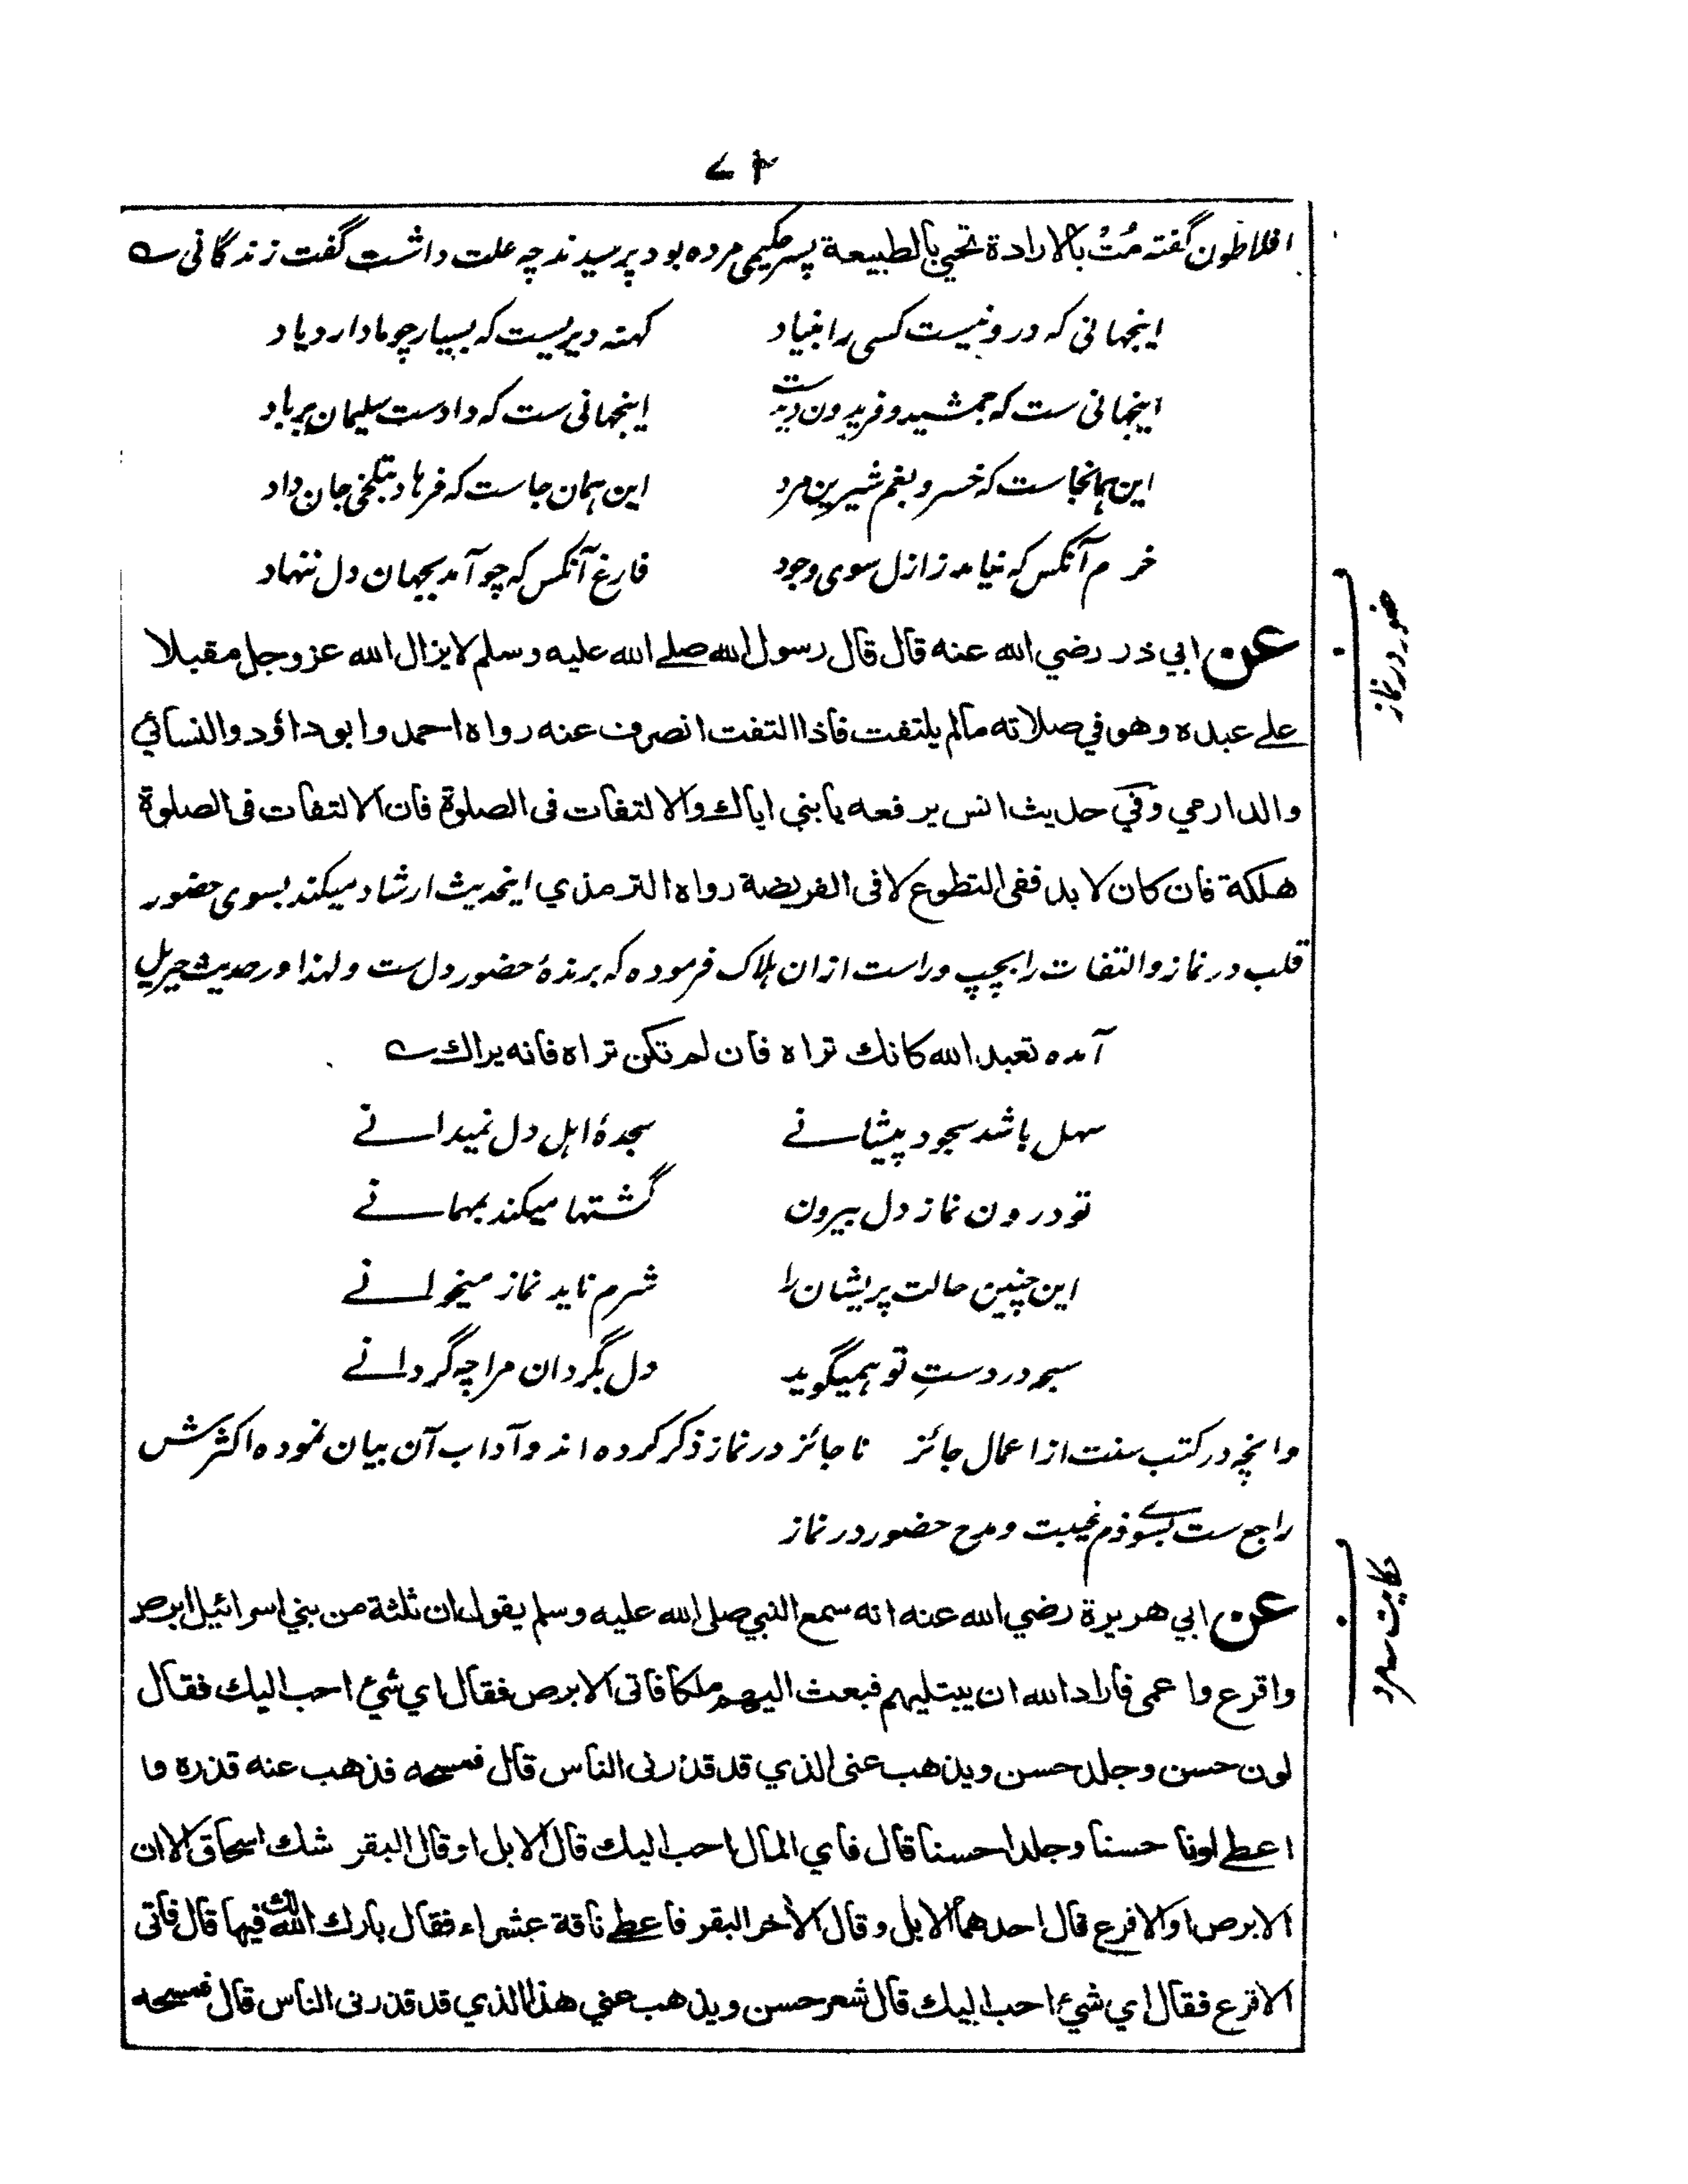 ۷۴
افلاطون گفته مُتُ بالارادة تحيي بالطبيعة پسر حکیمی مرده بود پرسیدند چه علت داشت گفت زندگانی ے
اینجهانی که درو نیست کسی را بنیاد کهنه دیریست که بسیار چو ما دارد یاد
اینجهانی ست که جمشید و فریدون دیدست اینجهانی ست که دادست سلیمان برباد
این همانجاست که خسرو بغم شیرین مرد این همان جاست که فرهاد بتلخی جان داد
خرم آنکس که نیامد ز ازل سوی وجود فارغ آنکس که چو آمد بجهان دل ننهاد
عن ابي ذر رضي الله عنه قال قال رسول الله صلے الله عليه وسلم لا يزال الله عز وجل مقبلا
علے عبده وهو في صلاته مالم يلتفت فاذا التفت انصرف عنه رواه احمد وابو داؤد والنسائي
والدارمي وفي حديث انس يرفعه يا بني اياك والالتفات فى الصلوة فان الالتفات فى الصلوة
هلكة فان كان لا بد ففى التطوع لا فى الفريضة رواه الترمذي اینحدیث ارشاد میکند بسوی حضور
قلب در نماز و التفات را بچپ و راست ازان هلاک فرموده که برندهٔ حضور دل ست و لهذا در حدیث جبریل
آمده تعبد الله كانك تراه فان لم تكن تراه فانه يراك ے
سهل باشد سجود پیشانے سجدهٔ اهل دل نمیدانے
تو درون نماز دل بیرون گشتها میکند بمهمانے
این چنین حالت پریشان را شرم ناید نماز میخوانے
سبحه در دستِ تو همیگوید دل بگردان مرا چه گردانے
وانچه در کتب سنت از اعمال جائز ناجائز در نماز ذکر کرده اند و آداب آن بیان نموده اکثرش
راجع ست بسوے ذم غیبت و مدح حضور در نماز
عن ابي هريرة رضي الله عنه انه سمع النبي صلى الله عليه وسلم يقول ان ثلثة من بني اسرائيل ابرص
واقرع واعمى فاراد الله ان يبتليهم فبعث اليهم ملكا فاتى الابرص فقال اي شئ احب اليك فقال
لون حسن وجلد حسن ويذهب عنى الذي قد قذرنى الناس قال فمسحه فذهب عنه قذره وا
اعطے لونا حسنا وجلدا حسنا قال فاي المال احب اليك قال الابل او قال البقر شك اسحاق الا ان
الابرص او الاقرع قال احدهما الابل وقال الآخر البقر فاعطے ناقة عشراء فقال بارك الله لك فيها قال فاتى
الاقرع فقال اي شئ احب اليك قال شعر حسن ويذهب عني هذا الذي قد قذرنى الناس قال فمسحه
حضور در نماز
حکایت سه مرد